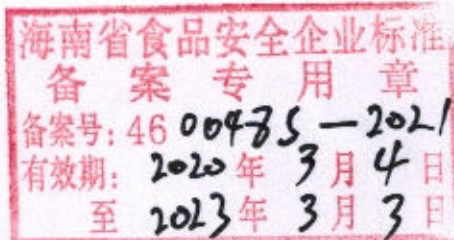 海南省食品安全企业标准
备案专用章
备案号: 46 000485—2021
有效期: 2020年3月4日
至 2023年3月3日